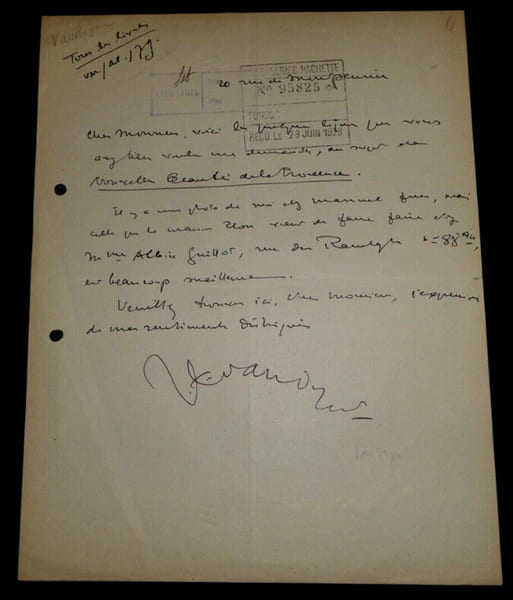 Vaudoyer
Tous les livres
20 rue de Montpensier
MESSAGERIES HACHETTE
No 95825
REÇU LE 28 JUIN 1926
Cher Monsieur, voici les quelques lignes que vous
avez bien voulu me demander, au sujet des
Nouvelles Beautés de la Provence.
Il y a une photo de moi chez Manuel frères, mais
celle que la maison Plon vient de faire faire chez
Mme Albin Guillot, rue du Ranelagh, 88,
est beaucoup meilleure.
Veuillez trouver ici, cher Monsieur, l'expression
de mes sentiments distingués
Vaudoyer